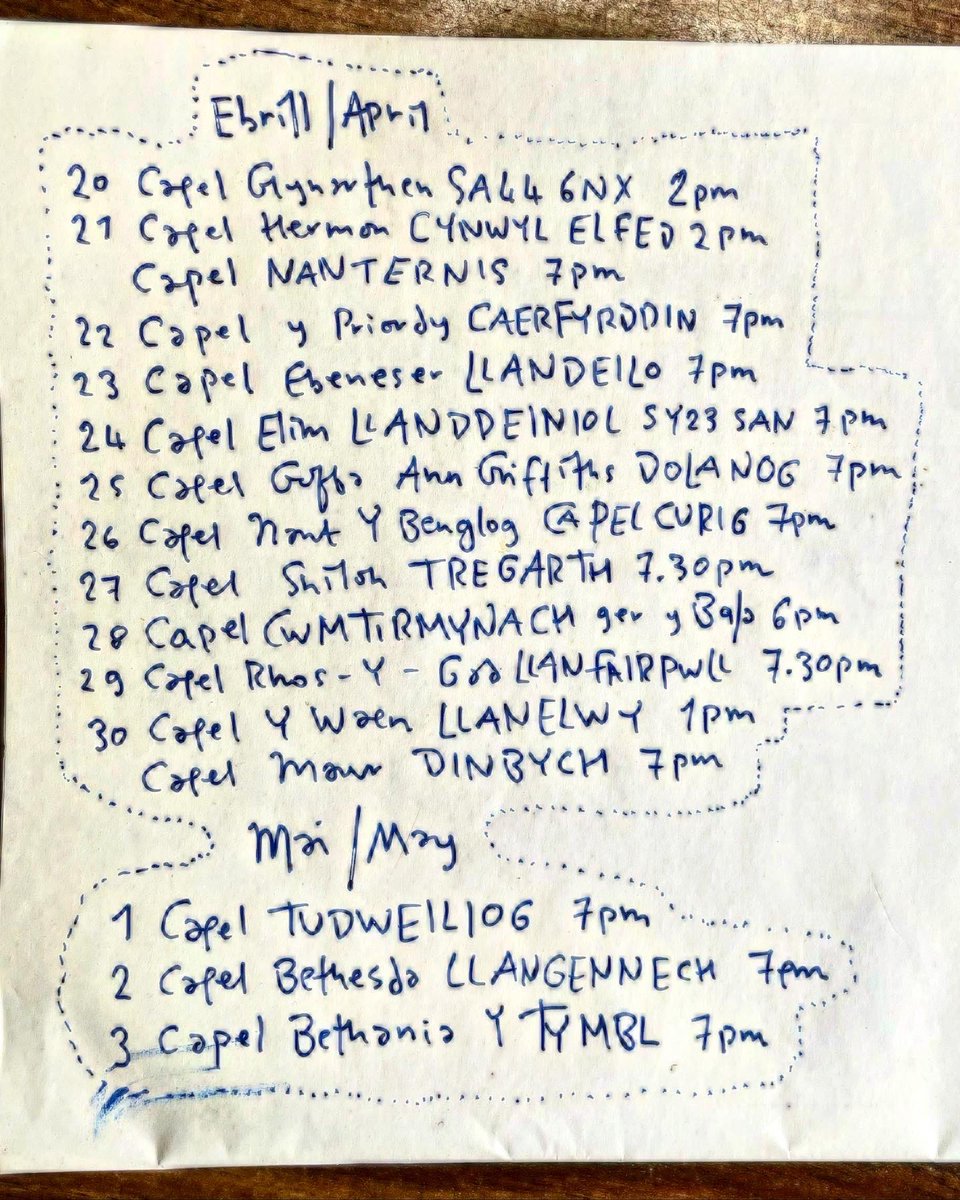 Ebrill/April
20 Capel Glynarthen SA44 6NX 2pm
21 Capel Hermon CYNWYL ELFED 2pm
Capel NANTERNIS 7pm
22 Capel y Priordy CAERFYRDDIN 7pm
23 Capel Ebeneser LLANDEILO 7pm
24 Capel Elim LLANDDEINIOL SY23 5AN 7pm
25 Capel Coffa Ann Griffiths DOLANOG 7pm
26 Capel Nant Y Benglog CAPEL CURIG 7pm
27 Capel Shiloh TREGARTH 7.30pm
28 Capel CWMTIRMYNACH ger y Bala 6pm
29 Capel Rhos-Y-Gad LLANFAIRPWLL 7.30pm
30 Capel Y Waen LLANELWY 1pm
Capel Mawr DINBYCH 7pm
Mai/May
1 Capel TUDWEILIOG 7pm
2 Capel Bethesda LLANGENNECH 7pm
3 Capel Bethania Y TYMBL 7pm